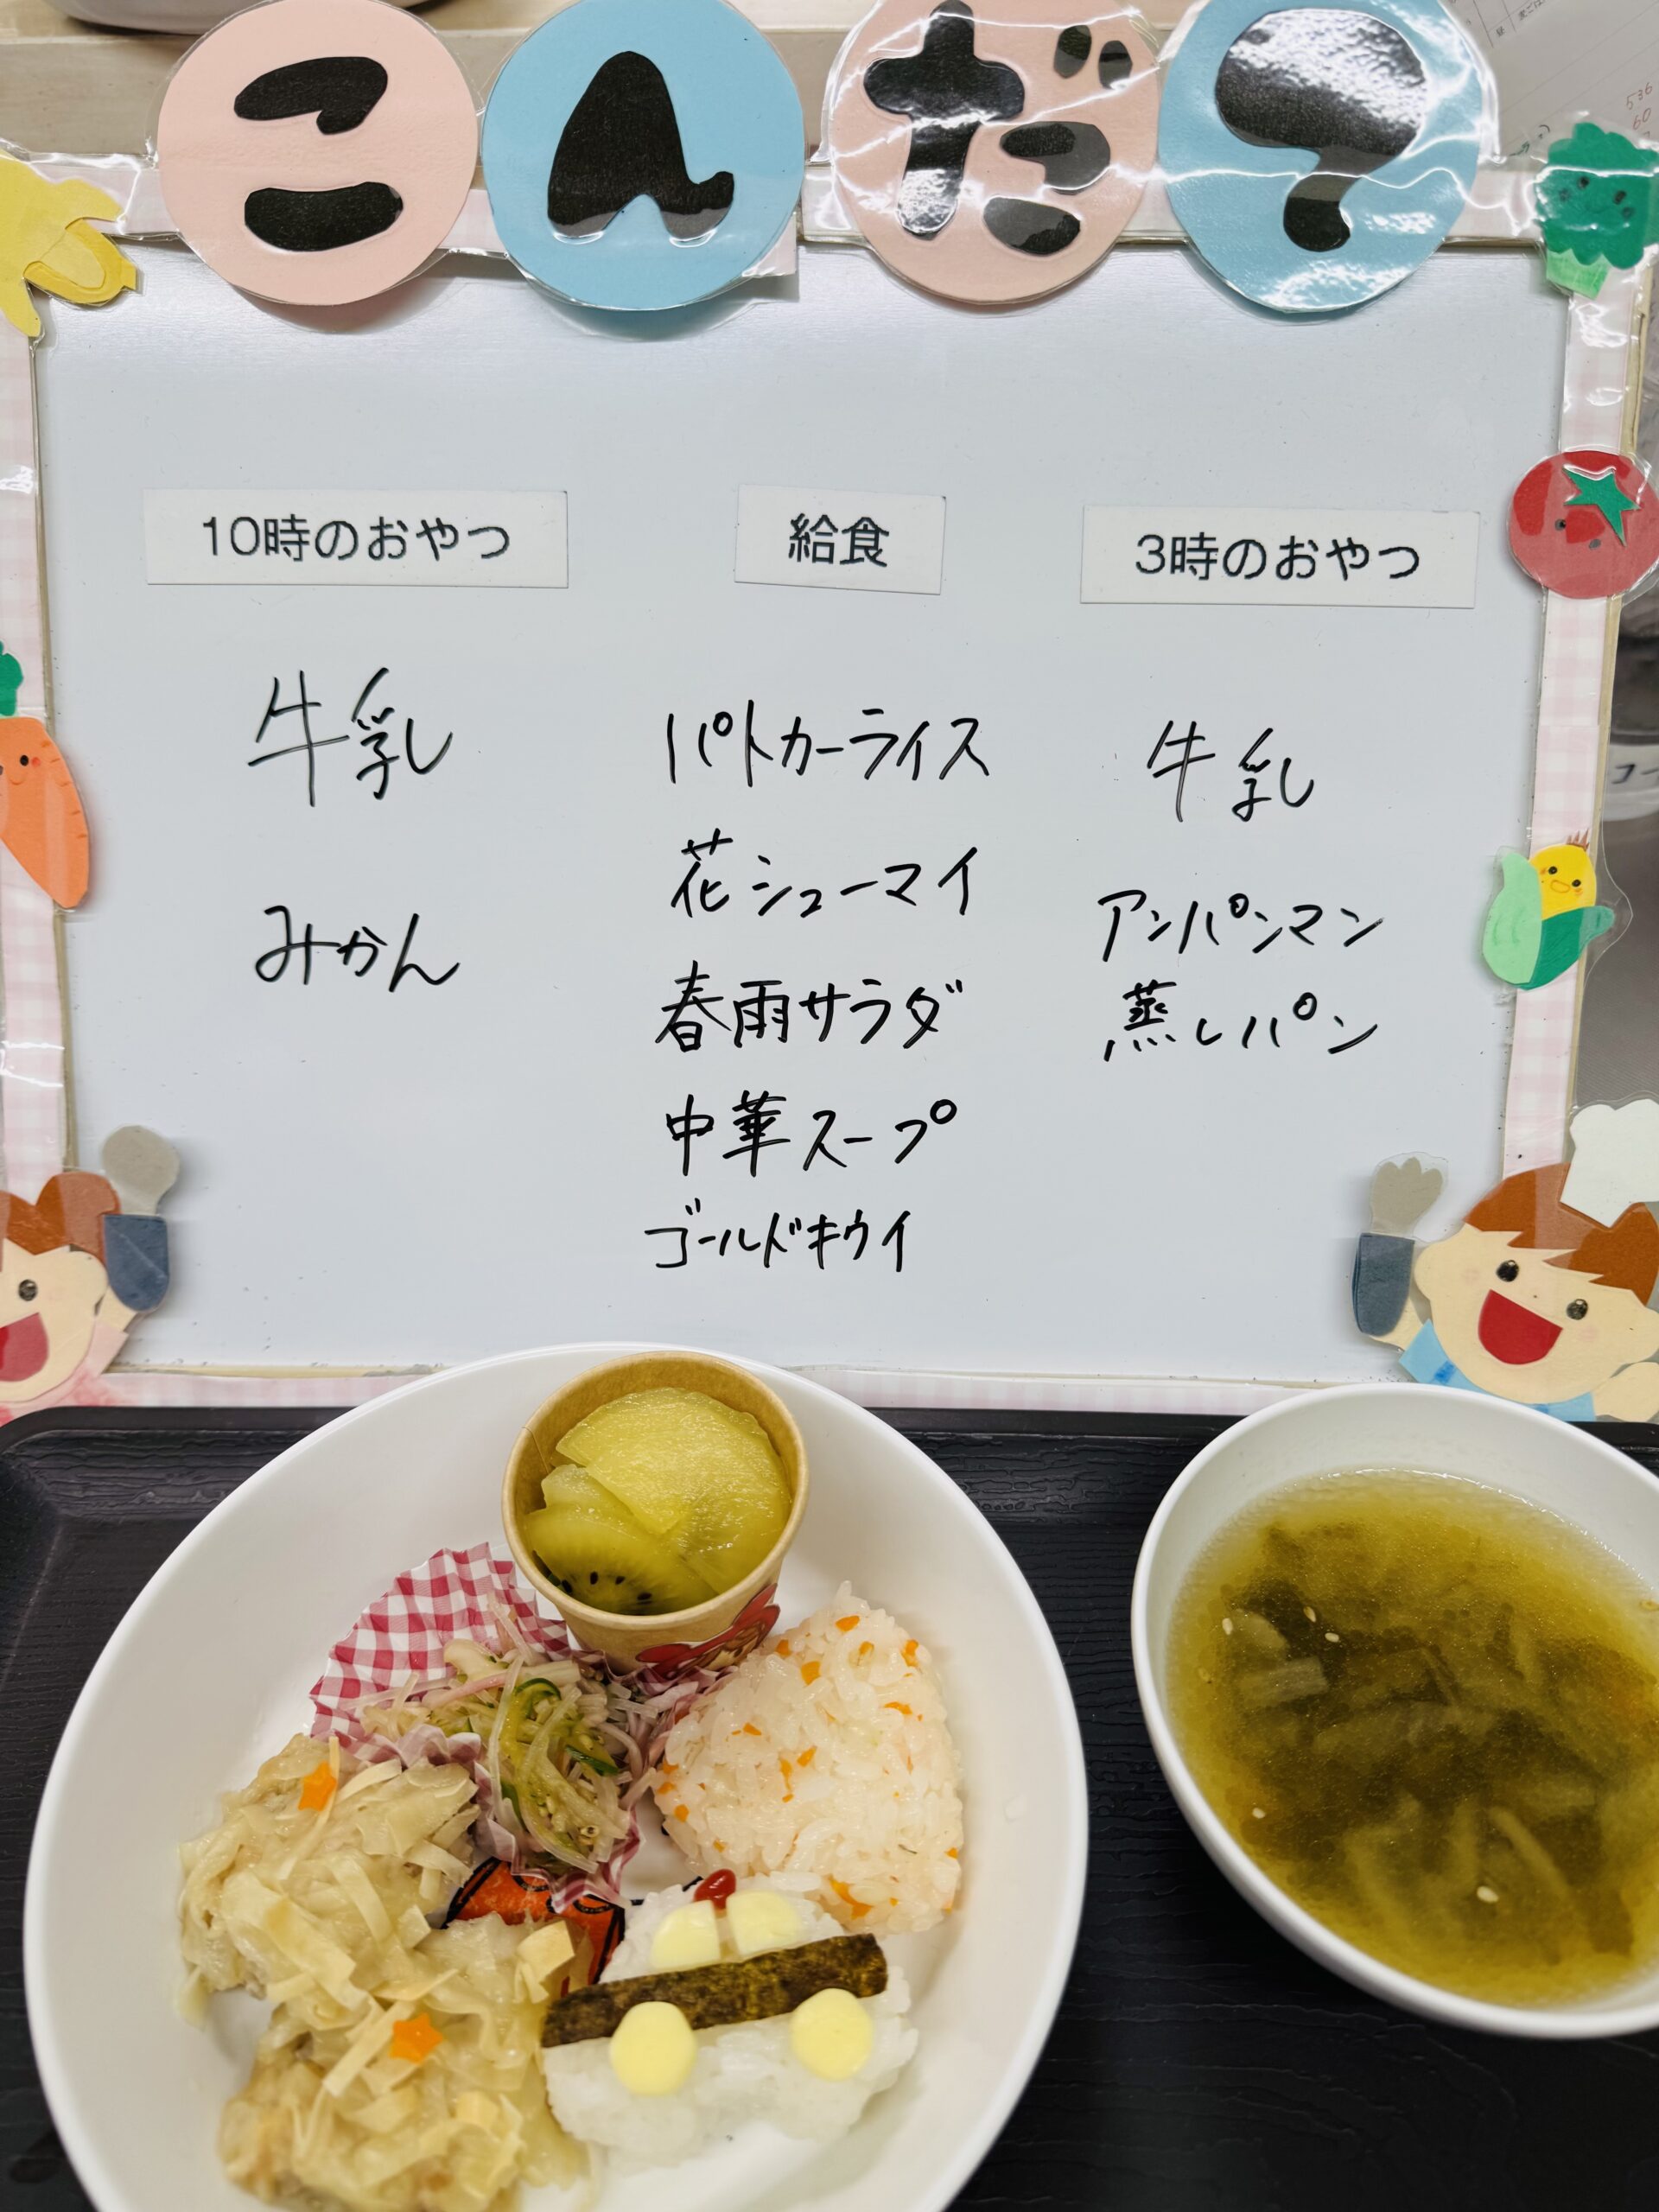 こんだて
10時のおやつ
牛乳
みかん
給食
パトカーライス
花シューマイ
春雨サラダ
中華スープ
ゴールドキウイ
3時のおやつ
牛乳
アンパンマン
蒸しパン